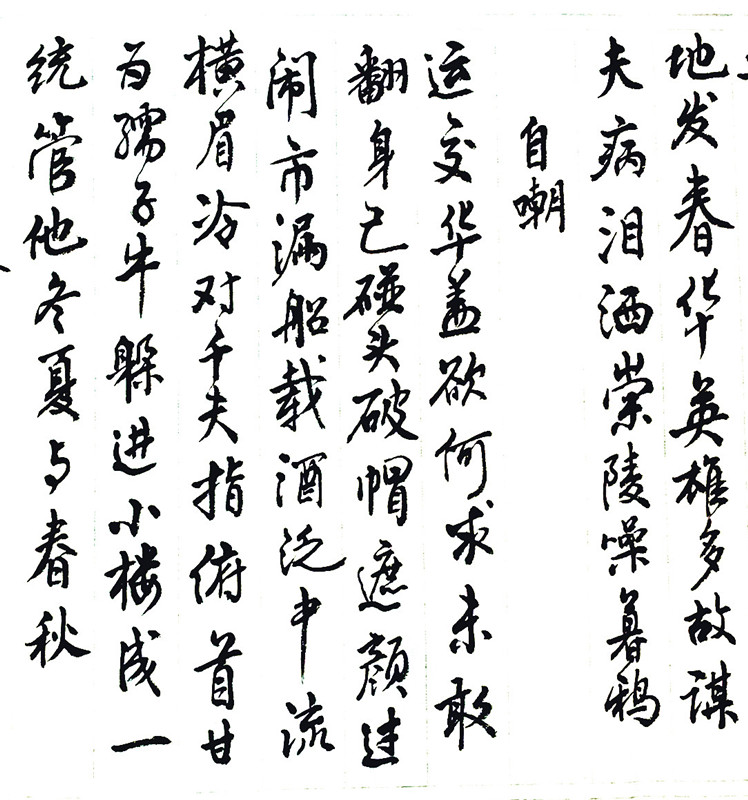 地发春华英雄多故谋
夫病泪洒崇陵噪暮鸦
自嘲
运交华盖欲何求未敢
翻身已碰头破帽遮颜过
闹市漏船载酒泛中流
横眉冷对千夫指俯首甘
为孺子牛躲进小楼成一
统管他冬夏与春秋